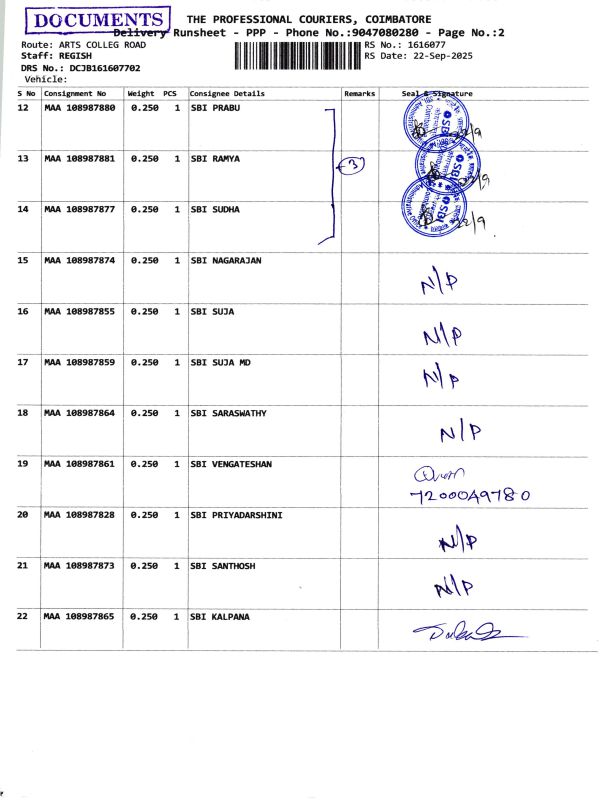 DOCUMENTS
THE PROFESSIONAL COURIERS, COIMBATORE
Delivery Runsheet - PPP - Phone No.:9047080280 - Page No.:2
Route: ARTS COLLEG ROAD
RS No.: 1616077
Staff: REGISH
RS Date: 22-Sep-2025
DRS No.: DCJB161607702
Vehicle:
S No Consignment No Weight PCS Consignee Details Remarks Seal & Signature
12 MAA 108987880 0.250 1 SBI PRABU
13 MAA 108987881 0.250 1 SBI RAMYA 3
14 MAA 108987877 0.250 1 SBI SUDHA 22/9
15 MAA 108987874 0.250 1 SBI NAGARAJAN N/P
16 MAA 108987855 0.250 1 SBI SUJA N/P
17 MAA 108987859 0.250 1 SBI SUJA MD N/P
18 MAA 108987864 0.250 1 SBI SARASWATHY N/P
19 MAA 108987861 0.250 1 SBI VENGATESHAN
7200049780
20 MAA 108987828 0.250 1 SBI PRIYADARSHINI N/P
21 MAA 108987873 0.250 1 SBI SANTHOSH N/P
22 MAA 108987865 0.250 1 SBI KALPANA